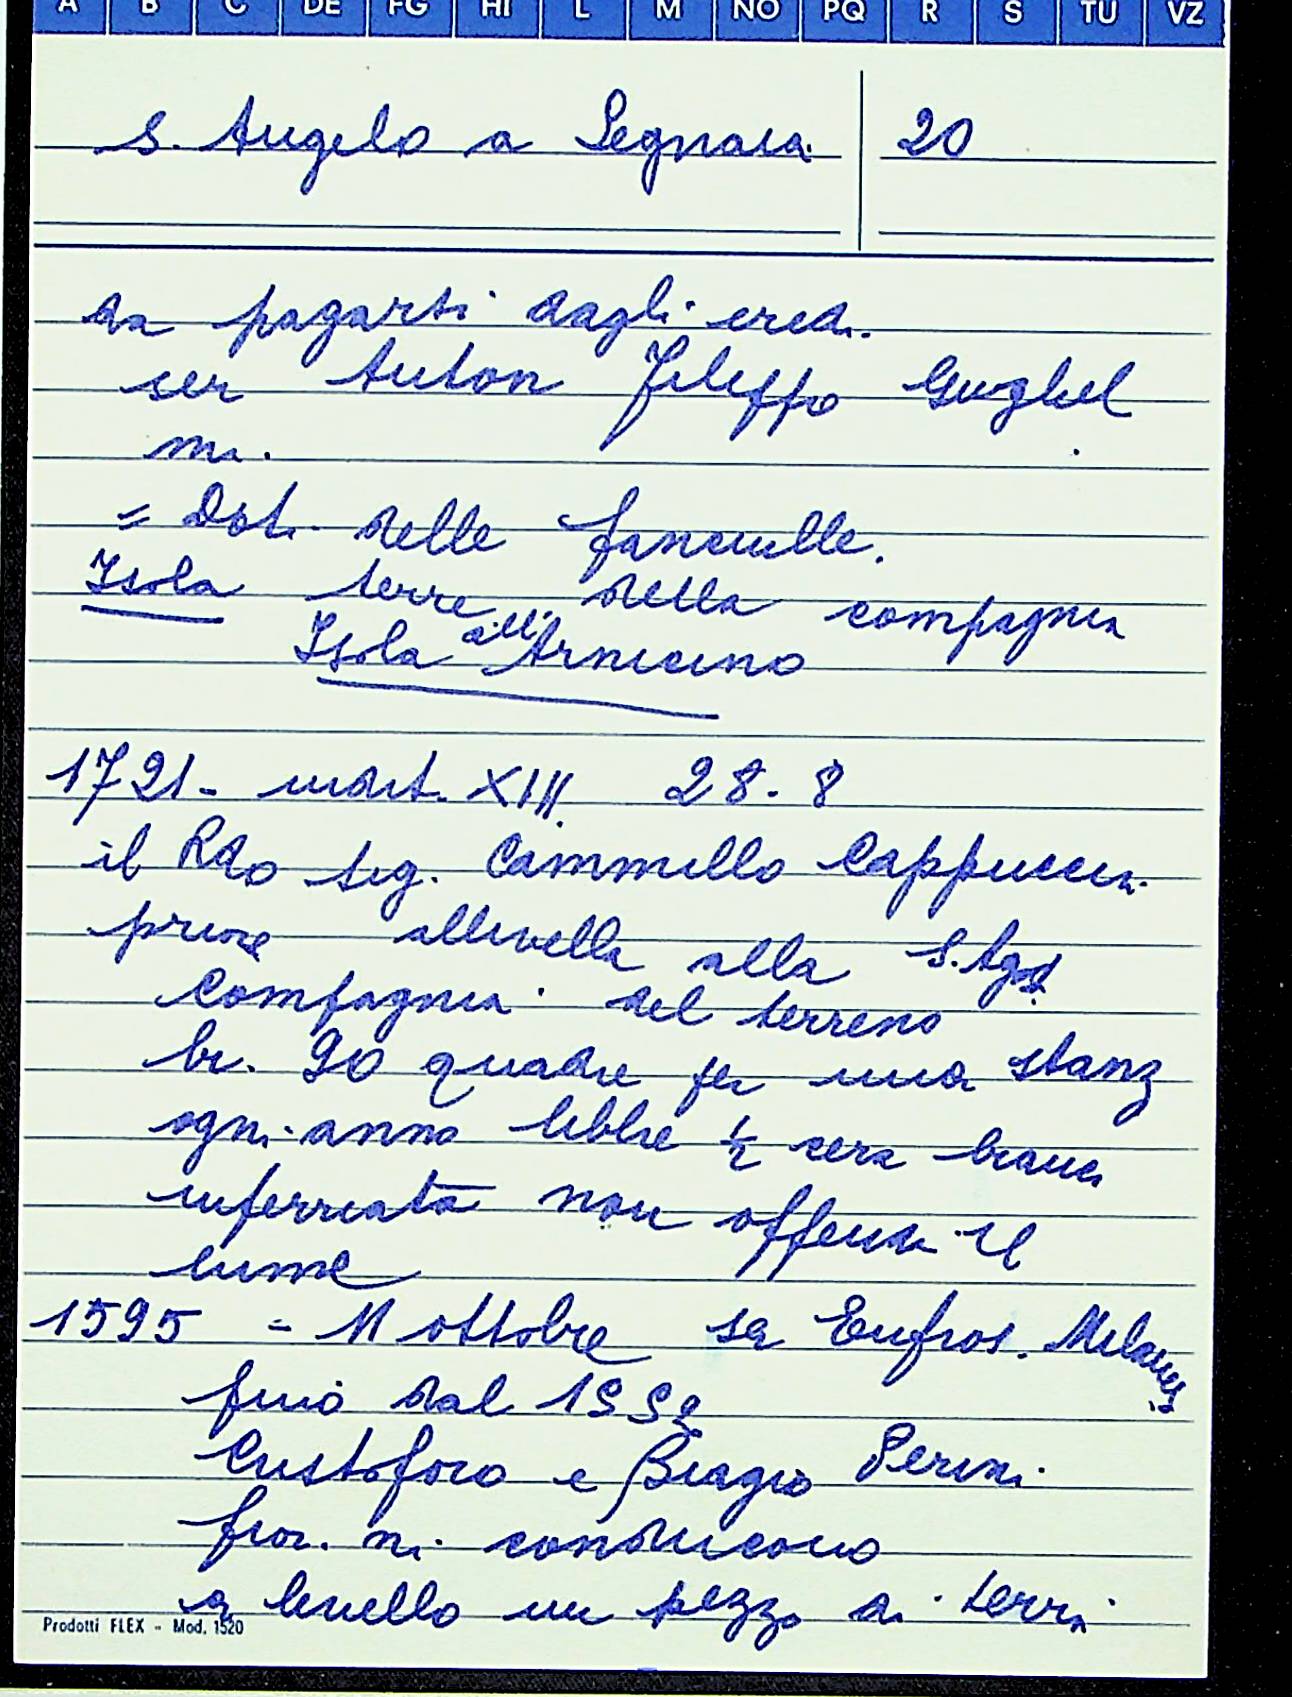 A B C DE FG HI L M NO PQ R S TU VZ
S. Angelo a Legnaia 20
da pagarsi dagli eredi
ser Anton Filippo Guglel
mi.
= Doti delle fanciulle.
Isola terre della compagnia
Isola all'Arnicino
1721 - indit. XIII 28. 8
il Rdo sig. Cammillo Cappuccini
priore allivella alla S. Ago
compagnia del terreno
br. 90 quadre per una stanz
ogni anno libbre ½ cera bianca
inferriata non offenda il
lume
1595 - 11 ottobre sa Eufros. Milanesi
fino dal
Cristoforo e Biagio Perini
fior. ni. conducono
a livello un pezzo di terra
Prodotti FLEX - Mod. 1520